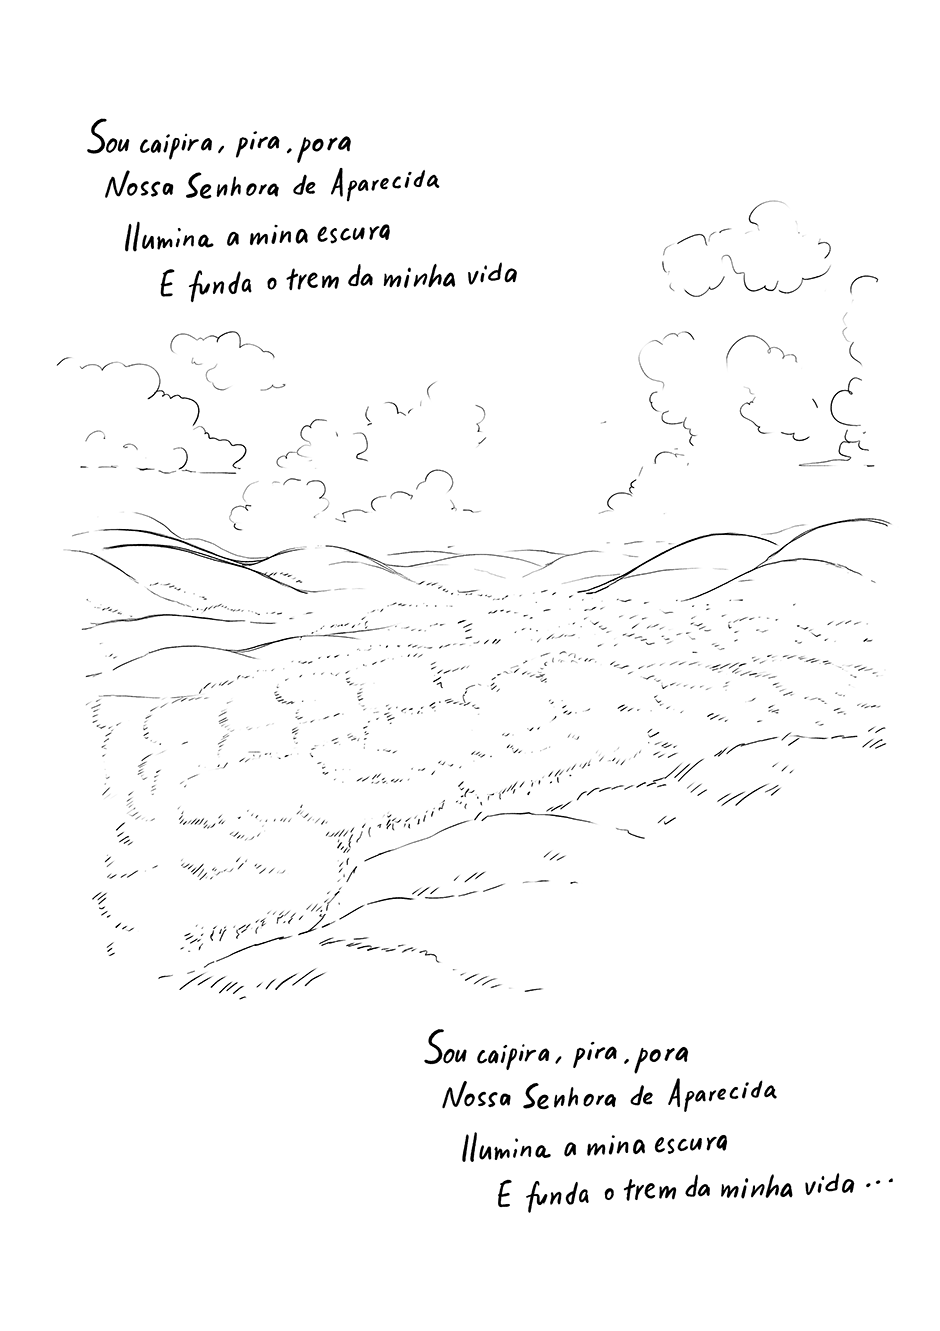 Sou caipira, pira, pora
Nossa Senhora de Aparecida
Ilumina a mina escura
E funda o trem da minha vida
Sou caipira, pira, pora
Nossa Senhora de Aparecida
Ilumina a mina escura
E funda o trem da minha vida ...